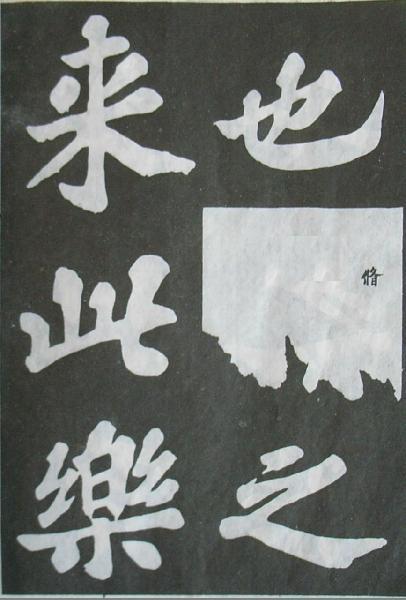 也脩之
来此樂